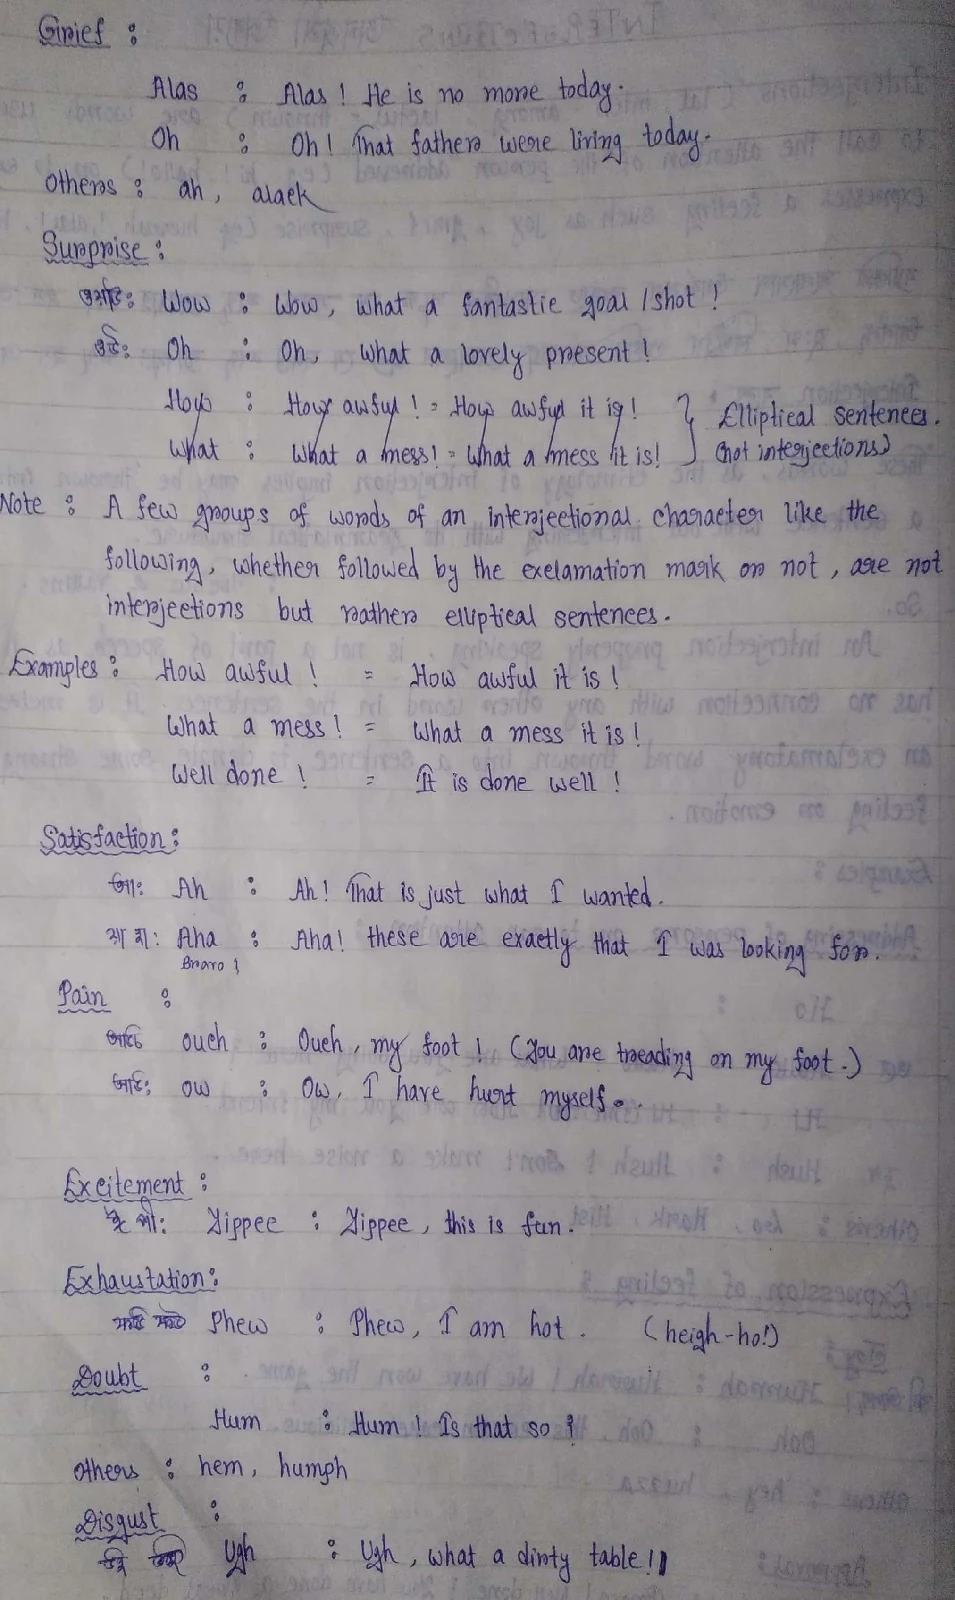 Grief :
Alas : Alas! He is no more today.
Oh : Oh! That father were living today.
Others : ah, alack
Surprise :
Wow : Wow, what a fantastic goal / shot !
Oh : Oh, what a lovely present !
How : How awful ! = How awful it is ! } Elliptical sentences.
What : What a mess! = What a mess it is! (not interjections)
Note : A few groups of words of an interjectional character like the
following, whether followed by the exclamation mark or not, are not
interjections but rather elliptical sentences.
Examples : How awful ! = How awful it is !
What a mess ! = What a mess it is !
Well done ! = It is done well !
Satisfaction :
আঃ Ah : Ah! That is just what I wanted.
Aha : Aha! these are exactly that I was looking for.
Bravo !
Pain :
ouch : Ouch, my foot ! (You are treading on my foot.)
ow : Ow, I have hurt myself.
Excitement :
Yippee : Yippee, this is fun.
Exhaustation :
Phew : Phew, I am hot. (heigh-ho!)
Doubt :
Hum : Hum ! Is that so ?
Others : hem, humph
Disgust :
Ugh : Ugh, what a dirty table !